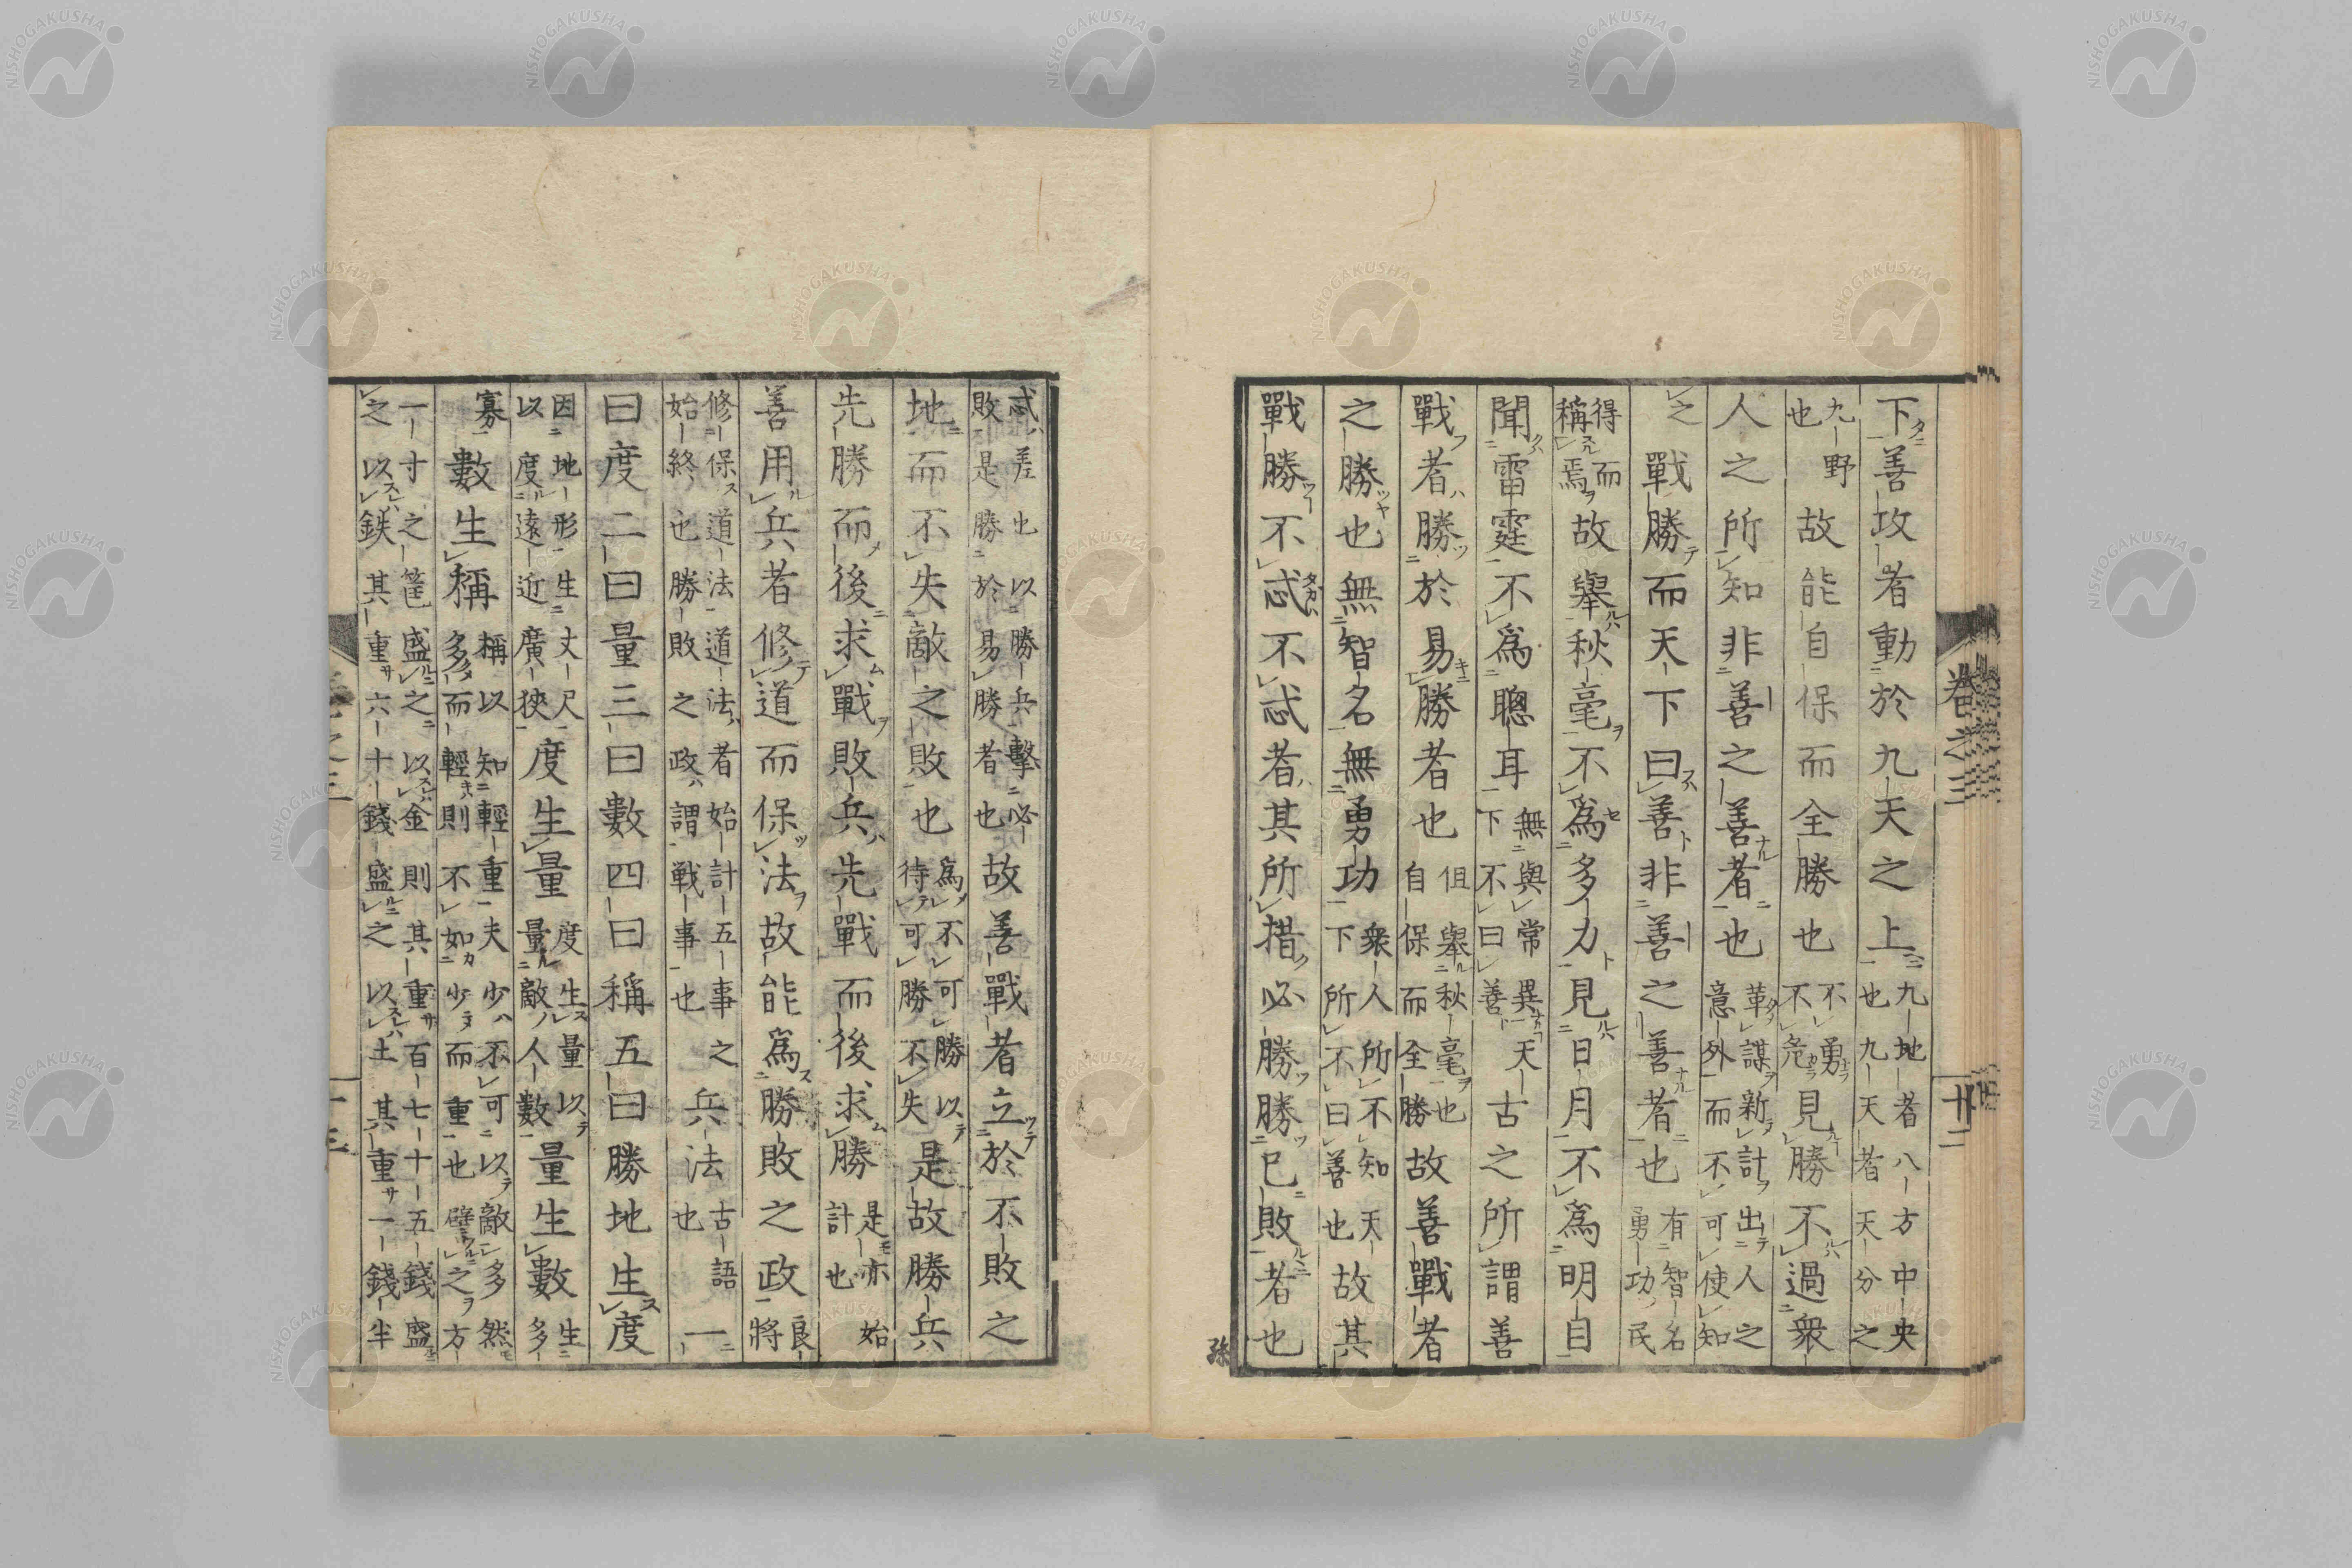 卷之三
十二
下善攻者動於九天之上九地者八方中央也九天者天分之
九野也故能自保而全勝也不勇不危見勝不過衆
人之所知非善之善者也革謀新計出人之意外而不可使知
之戰勝而天下曰善非善之善者也有智名勇功民
得而稱焉故舉秋毫不爲多力見日月不爲明目
聞雷霆不爲聰耳無與常異天下不曰善古之所謂善
戰者勝於易勝者也但舉秋毫也自保而全勝故善戰者
之勝也無智名無勇功衆人所不知天下所不曰善也故其
戰勝不忒不忒者其所措必勝勝已敗者也
孫
忒差也以勝兵擊必敗是勝於易勝者也故善戰者立於不敗之
地而不失敵之敗也爲不可勝以待可勝不失是故勝兵
先勝而後求戰敗兵先戰而後求勝是亦始計也
善用兵者修道而保法故能爲勝敗之政良將
修保道法道法者始計五事之始終也勝敗之政謂戰事也兵法古語也一
曰度二曰量三曰數四曰稱五曰勝地生度
因地形生丈尺以度遠近廣狹度生量度生量以量敵人數量生數生多
寡數生稱稱以知輕重夫少不可以敵多然多而輕則不如少而重也譬之方
一寸之筐盛之以金則其重百七十五錢盛之以鉄其重六十錢盛之以土其重一錢半